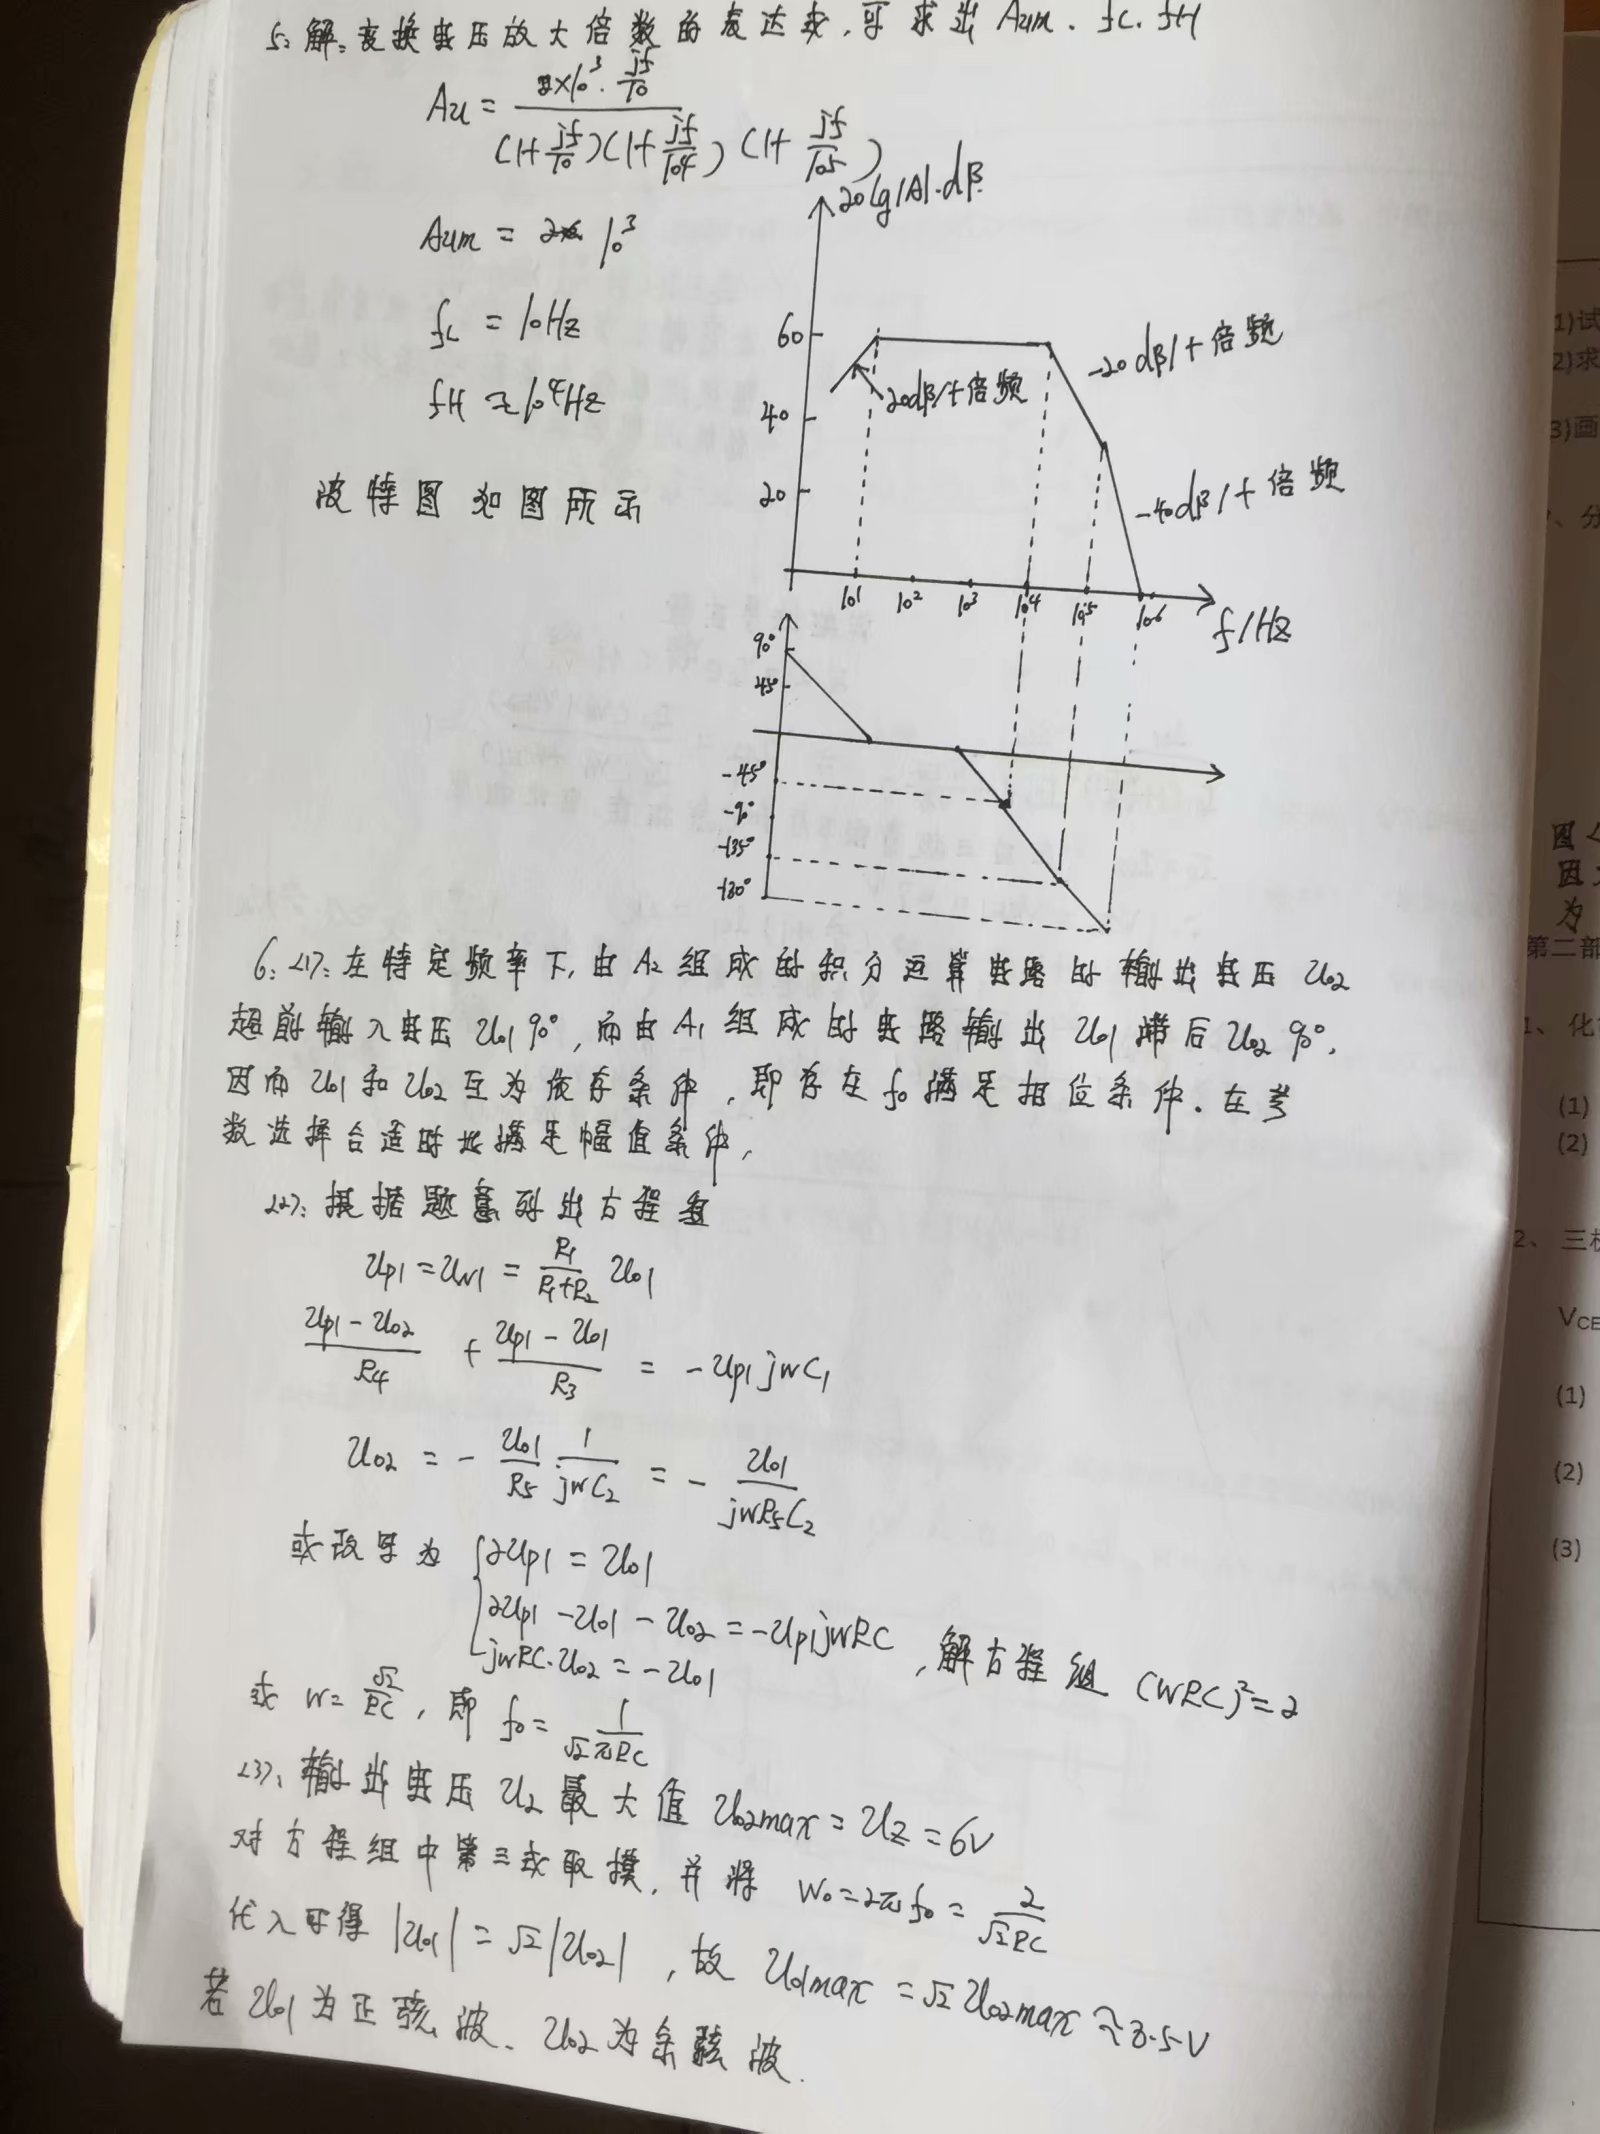 5、解:变换电压放大倍数的表达式,可求出 Aum、fL、fH
Au = 2×10³·jf/10 / (1+jf/10)(1+jf/10⁴)(1+jf/10⁵)
20lg|A|·dB
Aum = 10³
fL = 10Hz
fH ≈ 10⁴Hz
波特图如图所示
60
40
20
20dB/十倍频
-20dB/十倍频
-40dB/十倍频
10¹ 10² 10³ 10⁴ 10⁵ 10⁶
f/Hz
90°
45°
-45°
-90°
-135°
-180°
6、<1>:在特定频率下,由A₂组成的积分运算电路的输出电压 Uo2
超前输入电压 Uo1 90°,而由A₁组成的电路输出 Uo1 滞后 Uo2 90°,
因而 Uo1 和 Uo2 互为依存条件,即存在 f₀ 满足相位条件。在参
数选择合适时也满足幅值条件,
<2>:根据题意列出方程组
Up1 = UN1 = R₁/(R₁+R₂) Uo1
(Up1 - Uo2)/R₄ + (Up1 - Uo1)/R₃ = -Up1 jwC₁
Uo2 = - Uo1/R₅ · 1/jwC₂ = - Uo1/jwR₅C₂
或改写为 { 2Up1 = Uo1
2Up1 - Uo1 - Uo2 = -Up1jwRC ,解方程组 (wRC)² = 2
jwRC·Uo2 = -Uo1
或 w = √2/RC ,即 f₀ = 1/√2πRC
<3>、输出电压 U₂ 最大值 Uo2max = Uz = 6V
对方程组中第三式取模,并将 w₀ = 2πf₀ = 2/√2RC
代入可得 |Uo1| = √2|Uo2| ,故 Uo1max = √2 Uo2max ≈ 8.5V
若 Uo1 为正弦波、Uo2 为余弦波.
1)试
2)求
3)画
、分
图
因
为
第二部
1、 化
(1)
(2)
2、 三极
VCE
(1)
(2)
(3)